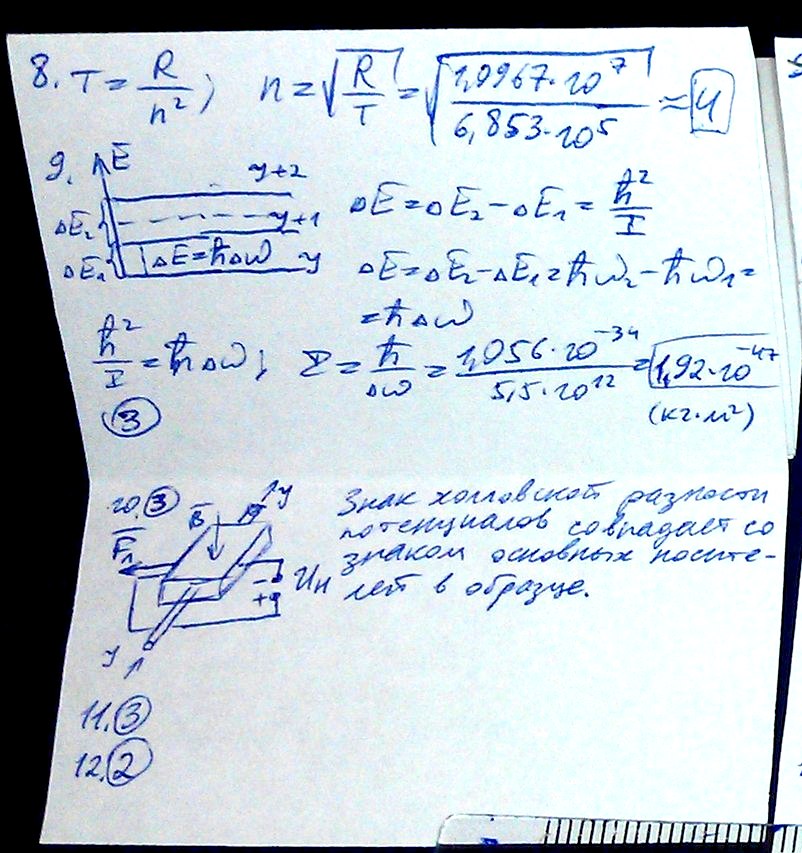 8. T = R/n²; n = √(R/T) = √(1,0967·10⁷/6,853·10⁵) ≈ 4
9. E
y+2
ΔE₂ y+1
ΔE₁ ΔE=ħΔω y
ΔE = ΔE₂ - ΔE₁ = ħ²/I
ΔE = ΔE₂ - ΔE₁ = ħω₂ - ħω₁ =
= ħΔω
ħ²/I = ħΔω; I = ħ/Δω = 1,056·10⁻³⁴/5,5·10¹² = 1,92·10⁻⁴⁷
(кг·м²)
3
10. 3 Знак холловской разности
потенциалов совпадает со
знаком основных носите-
лей в образце.
B
y
Fл
Uн
-
+
y
11. 3
12. 2